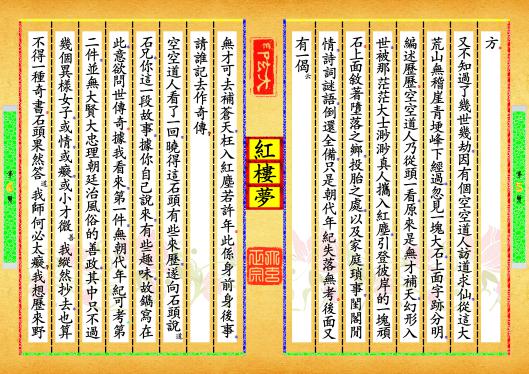 方。
又不知過了幾世幾劫因有個空空道人訪道求仙從這大
荒山無稽崖青埂峰下經過忽見一塊大石上面字跡分明。
編述歷歷空空道人乃從頭一看原來是無才補天幻形入
世被那茫茫大士渺渺真人攜入紅塵引登彼岸的一塊頑
石上面敘著墮落之鄉投胎之處以及家庭瑣事閨閣閒
情詩詞謎語倒還全備只是朝代年紀失落無考後面又
有一偈
紅樓夢
無才可去補蒼天枉入紅塵若許年此係身前身後事。
請誰記去作奇傳。
空空道人看了一回曉得這石頭有些來歷遂向石頭說道
石兄你這一段故事據你自己說來有些趣味故鐫寫在
此意欲問世傳奇據我看來第一件無朝代年紀可考第
二件並無大賢大忠理朝廷治風俗的善政其中只不過
幾個異樣女子或情或癡或小才微善我縱然抄去也算
不得一種奇書石頭果然答道我師何必太癡我想歷來野